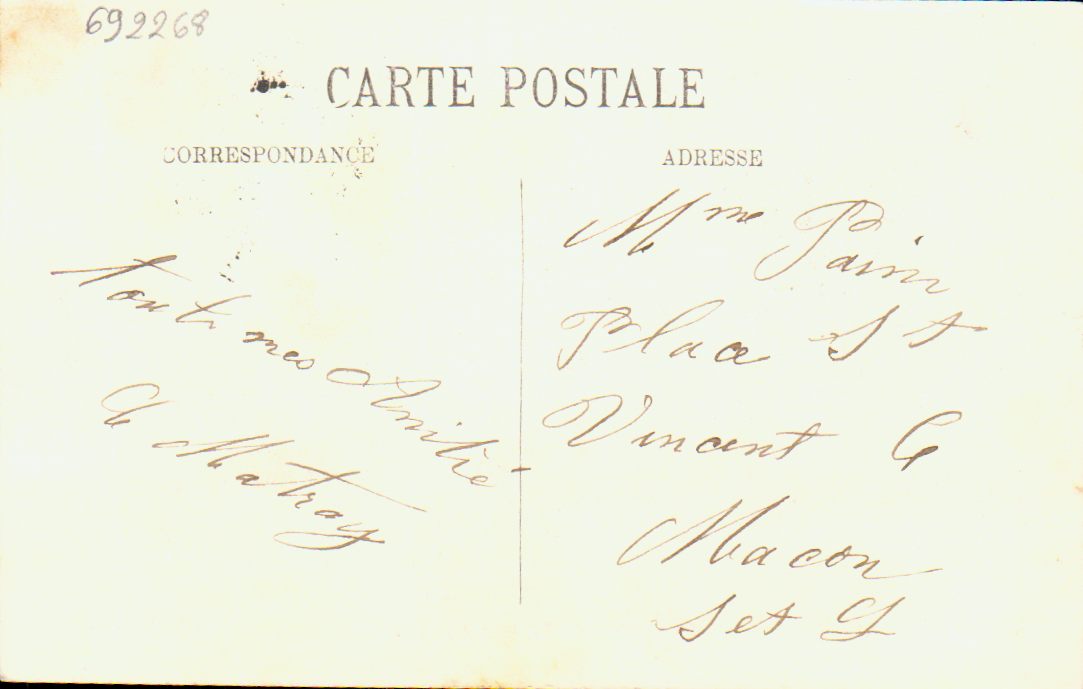 692268
CARTE POSTALE
CORRESPONDANCE
ADRESSE
tout mes Amitié
Matray
Mme Pain
Place St
Vincent 6
Macon
S et L